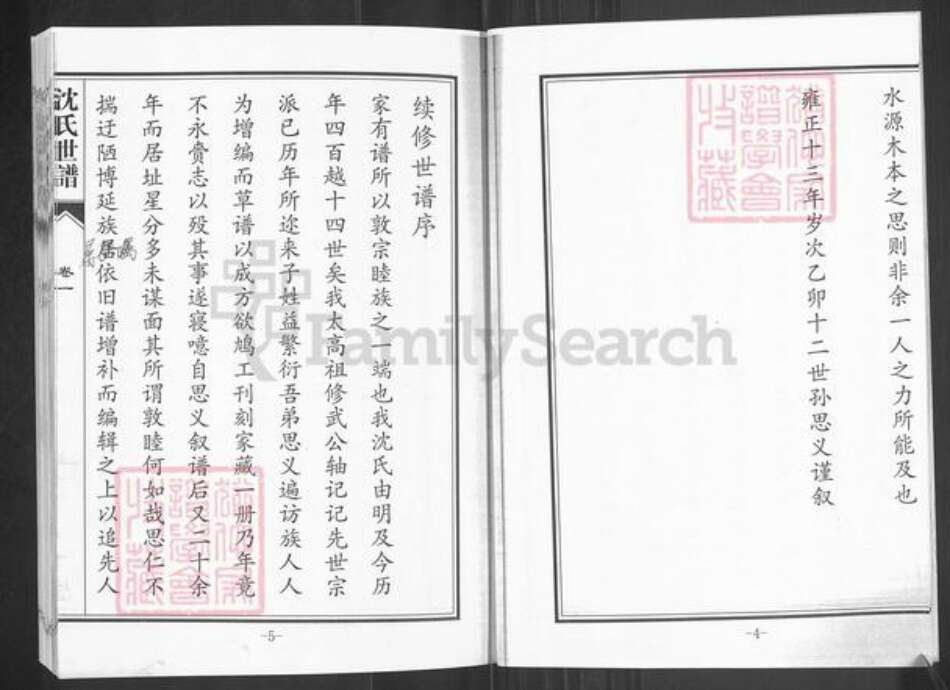 水源木本之思则非余一人之力所能及也
雍正十三年岁次乙卯十二世孙思义谨叙
-4-
续修世谱序
家有谱所以敦宗睦族之一端也我沈氏由明及今历
年四百越十四世矣我太高祖修武公轴记记先世宗
派已历年所迩来子姓益繁衍吾弟思义遍访族人人
为增编而草谱以成方欲鸠工刊刻家藏一册乃年竟
不永赍志以殁其事遂寝噫自思义叙谱后又二十余
年而居址星分多未谋面其所谓敦睦何如哉思仁不
揣迂陋博延族居依旧谱增补而编辑之上以追先人
沈氏世譜
卷一
-5-
FamilySearch